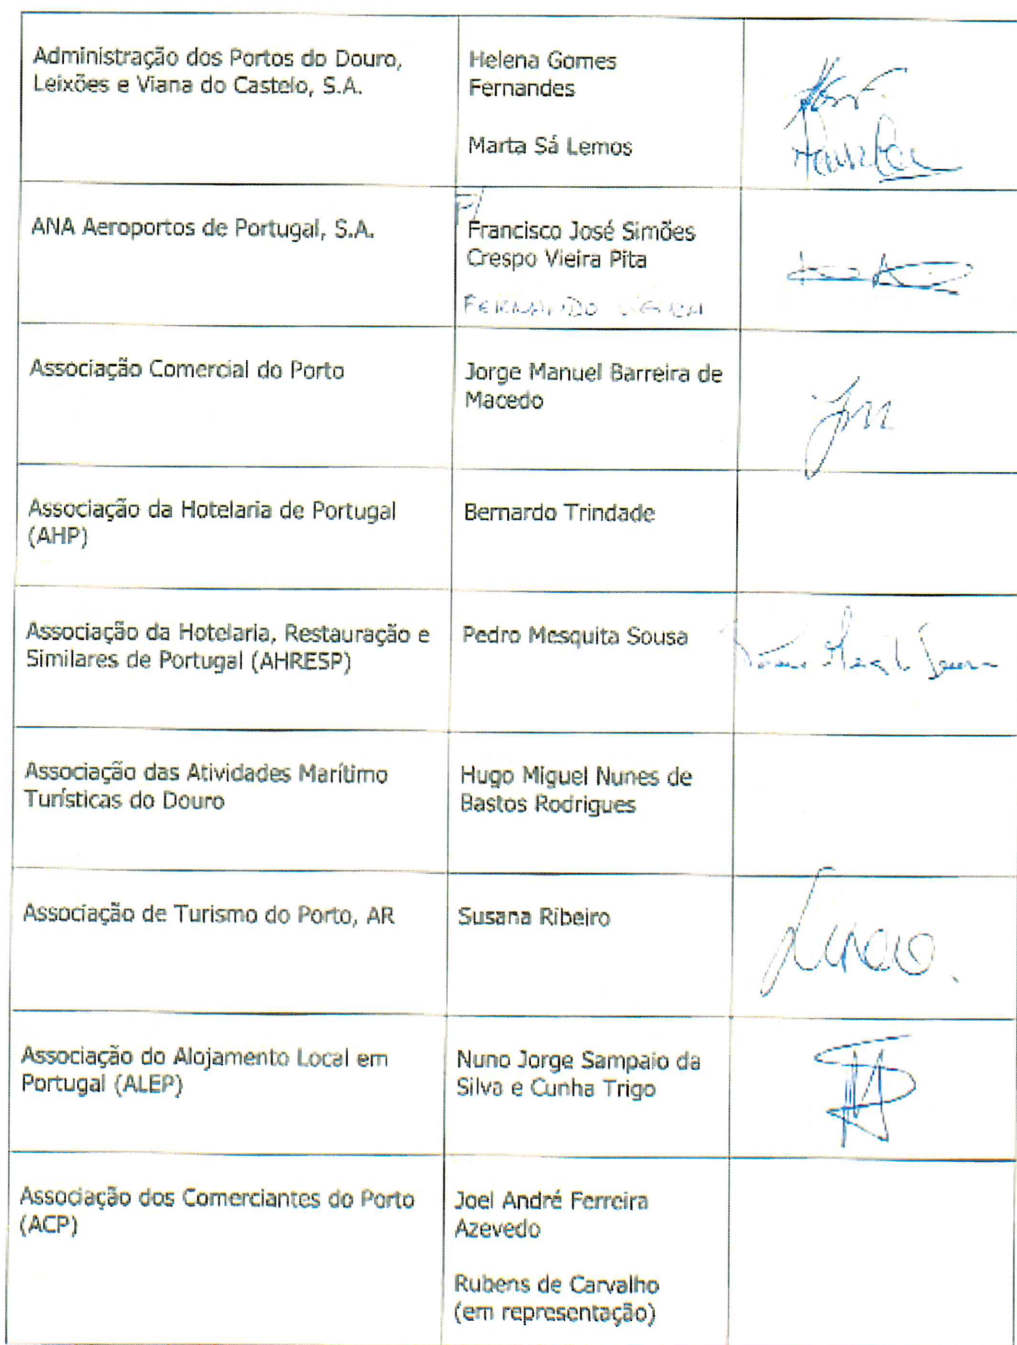 Administração dos Portos do Douro,
Leixões e Viana do Castelo, S.A.
Helena Gomes
Fernandes
Marta Sá Lemos
ANA Aeroportos de Portugal, S.A.
P/
Francisco José Simões
Crespo Vieira Pita
FERNANDO
Associação Comercial do Porto
Jorge Manuel Barreira de
Macedo
Associação da Hotelaria de Portugal
(AHP)
Bernardo Trindade
Associação da Hotelaria, Restauração e
Similares de Portugal (AHRESP)
Pedro Mesquita Sousa
Associação das Atividades Marítimo
Turísticas do Douro
Hugo Miguel Nunes de
Bastos Rodrigues
Associação de Turismo do Porto, AR
Susana Ribeiro
Associação do Alojamento Local em
Portugal (ALEP)
Nuno Jorge Sampaio da
Silva e Cunha Trigo
Associação dos Comerciantes do Porto
(ACP)
Joel André Ferreira
Azevedo
Rubens de Carvalho
(em representação)